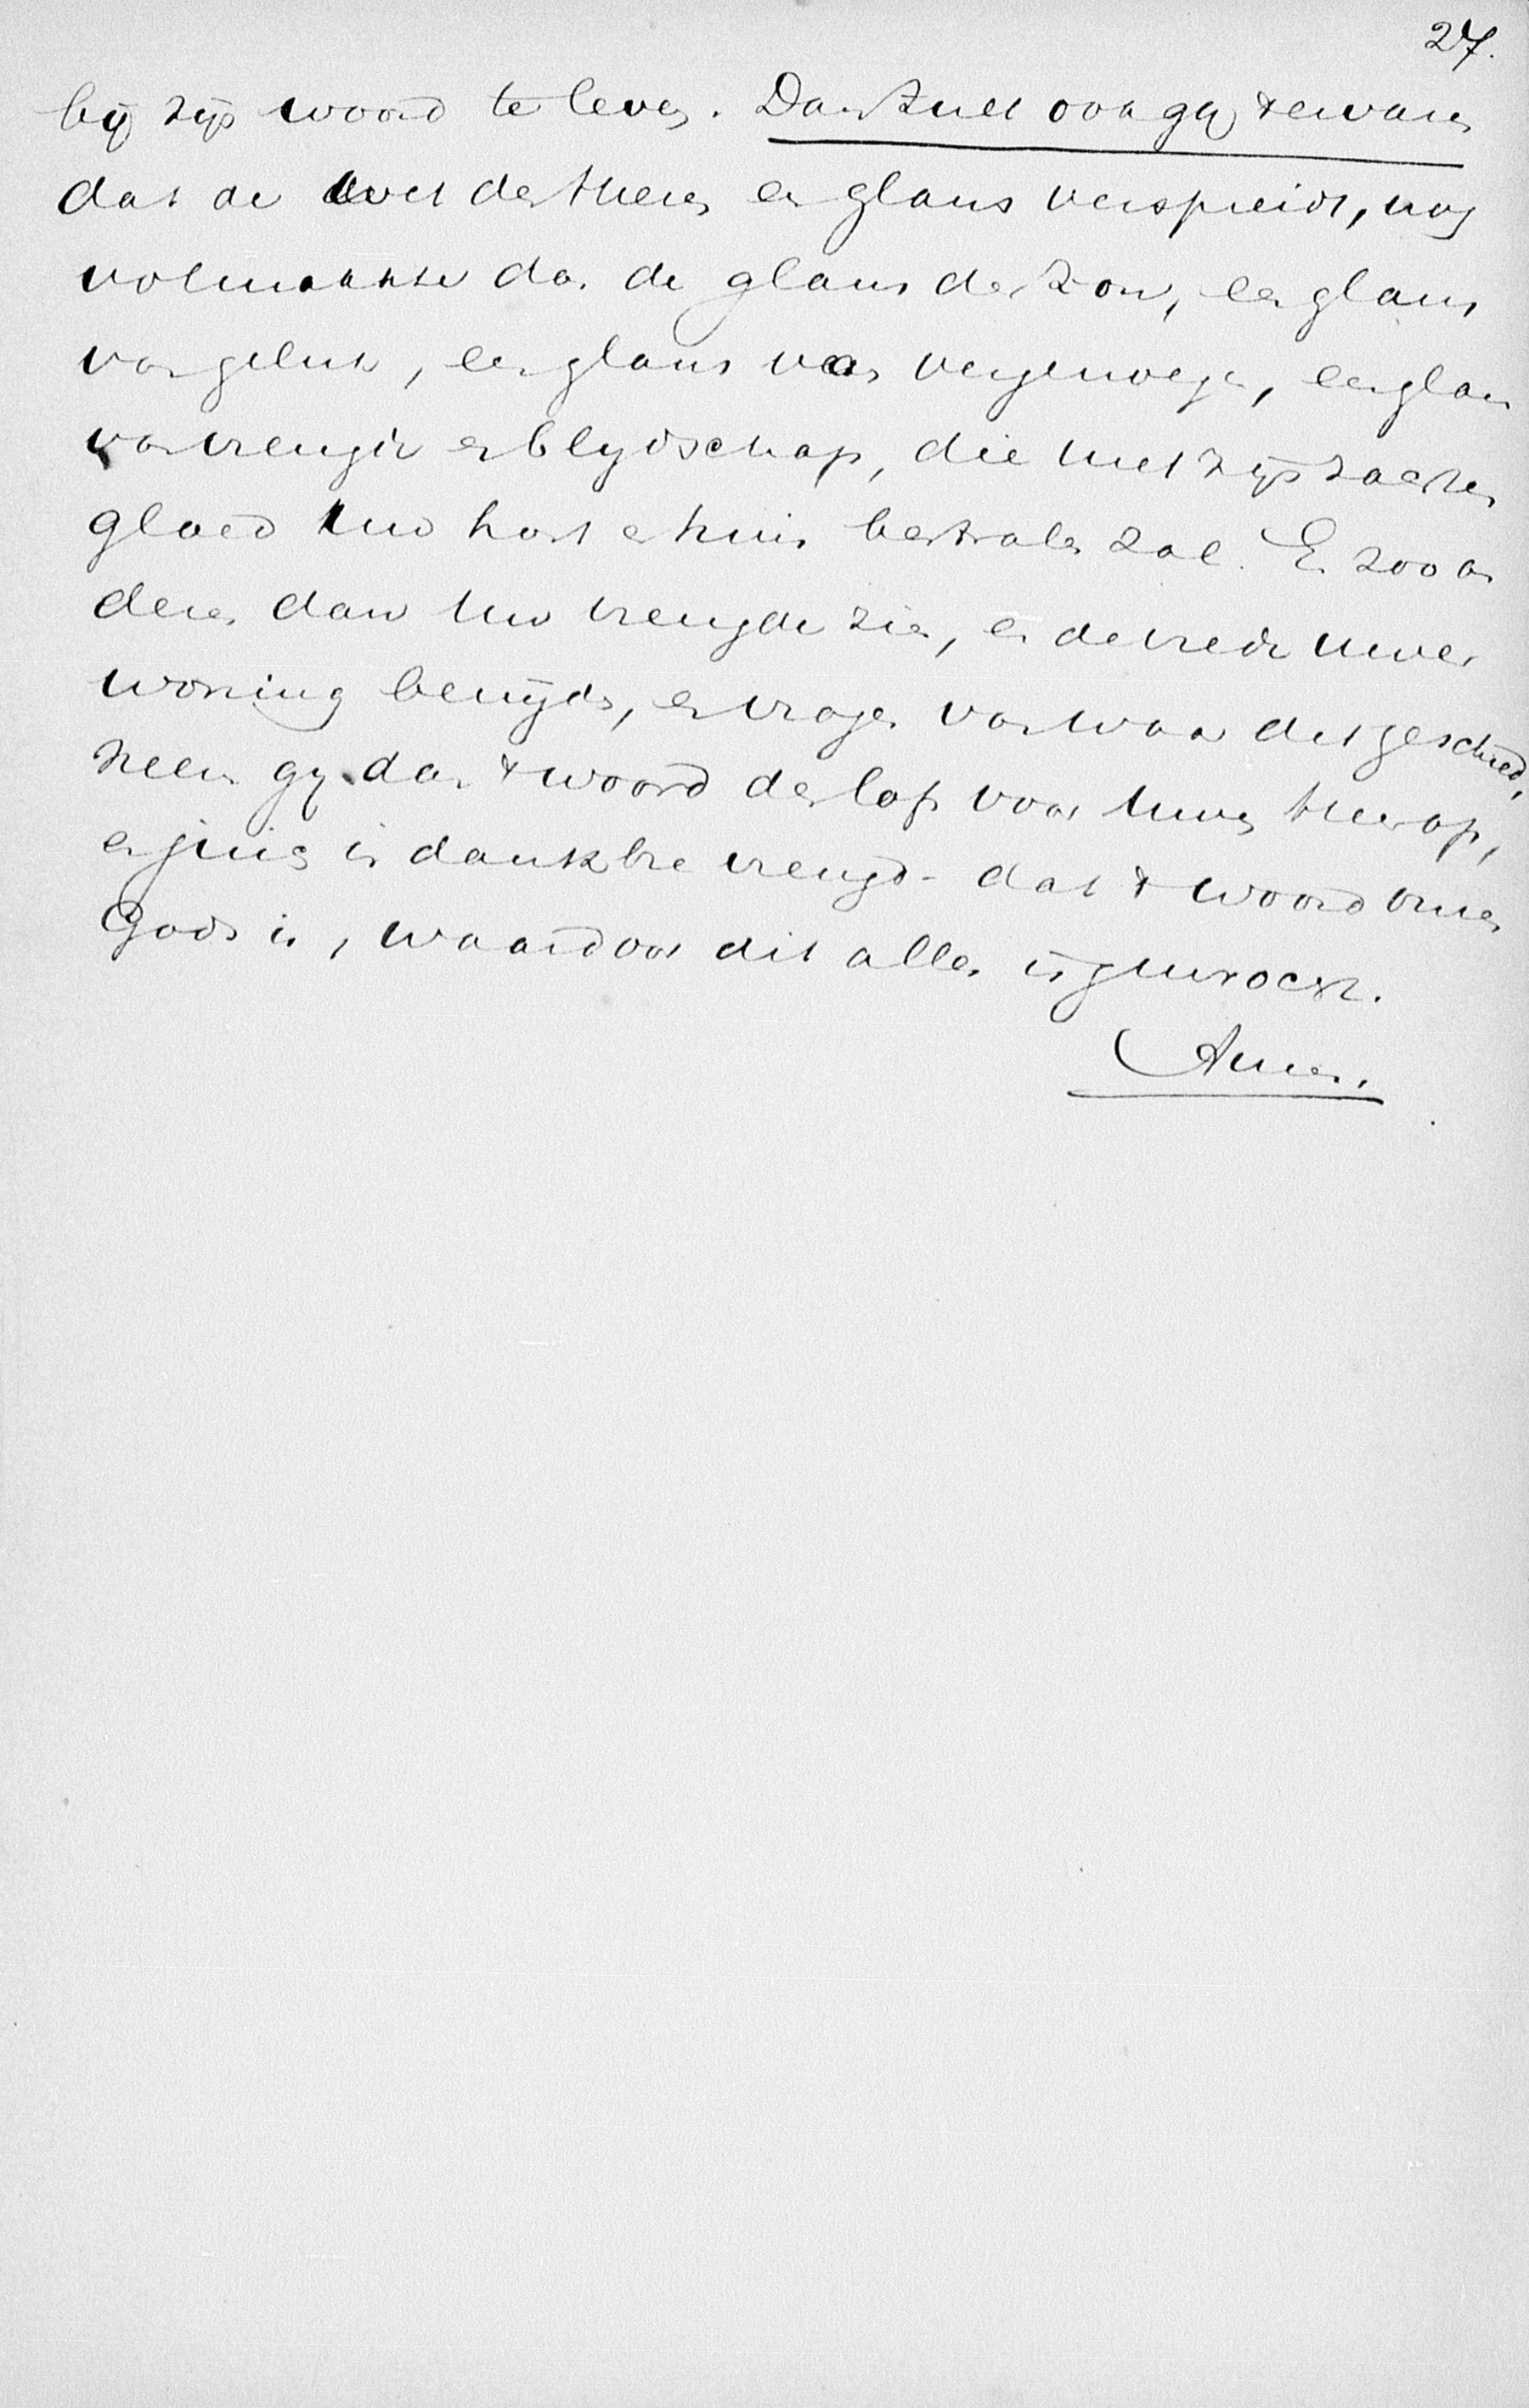 27.
bij zijn woord te leven. Dan zult ook gij ervaren
dat de wet des Heren een glans verspreidt, nog
volmaakter dan de glans der zon, een glans
van geluk, een glans van vergenoegen, een glans
van vreugde en blijdschap, die met zijn zachten
gloed uw hart en huis bestralen zal. En zoo an
deren dan uw vreugde zien, en de vrede uwer
woning benijden, en vragen van waar dit geschied,
heen gij dan 't woord des lofs voor uwen Heer op,
en juich in dankbre vreugd - dat 't woord uwes
Gods is, waardoor dit alles is gewrocht.
Amen.